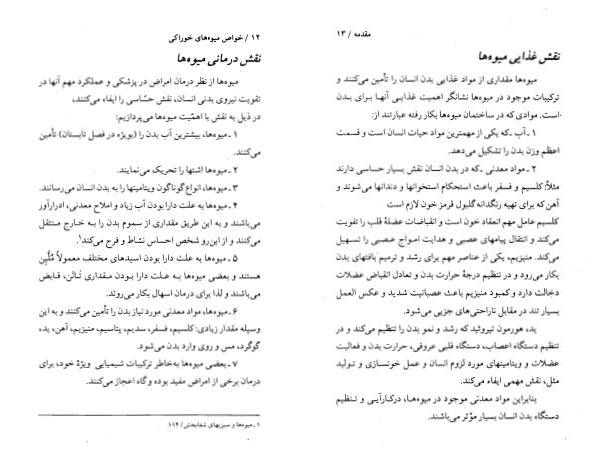 ۱۲ / خواص میوه‌های خوراکی
نقش درمانی میوه‌ها
میوه‌ها از نظر درمان امراض در پزشکی و عملکرد مهم آنها در
تقویت نیروی بدنی انسان، نقش حسّاسی را ایفاء می‌کنند،
در ذیل به نقش با اهمّیت میوه‌ها می‌پردازیم:
۱ ـ میوه‌ها، بیشترین آب بدن را (بویژه در فصل تابستان) تأمین
می‌کنند.
۲ ـ میوه‌ها اشتها را تحریک می‌نمایند.
۳ ـ میوه‌ها، انواع گوناگون ویتامینها را به بدن انسان می‌رسانند.
۴ ـ میوه‌ها به علت دارا بودن آب زیاد و املاح معدنی، ادرارآور
می‌باشند و به این طریق مقداری از سموم بدن را به خارج منتقل
می‌کنند و از این‌رو شخص احساس نشاط و فرح می‌کند.۱
۵ ـ میوه‌ها به علت دارا بودن اسیدهای مختلف معمولاً مُلَیِّن
هستند و بعضی میوه‌ها به علت دارا بودن مقداری تَانَن، قابض
می‌باشند و لذا برای درمان اسهال بکار می‌روند.
۶ ـ میوه‌ها، مواد معدنی مورد نیاز بدن را تأمین می‌کنند و به این
وسیله مقدار زیادی: کلسیم، فسفر، سدیم، پتاسیم، منیزیم، آهن، ید،
گوگرد، مس و روی وارد بدن می‌شود.
۷ ـ بعضی میوه‌ها به‌خاطر ترکیبات شیمیایی ویژهٔ خود، برای
درمان برخی از امراض مفید بوده و گاه اعجاز می‌کنند.
۱ ـ میوه‌ها و سبزیهای شفابخش / ۱۱۴.
مقدمه / ۱۳
نقش غذایی میوه‌ها
میوه‌ها مقداری از مواد غذایی بدن انسان را تأمین می‌کنند و
ترکیبات موجود در میوه‌ها نشانگر اهمیت غذایی آنها برای بدن
است. موادی که در ساختمان میوه‌ها بکار رفته عبارتند از:
۱ ـ آب ـ که یکی از مهمترین مواد حیات انسان است و قسمت
اعظم وزن بدن را تشکیل می‌دهد.
۲ ـ مواد معدنی ـ که در بدن انسان نقش بسیار حساسی دارند
مثلاً: کلسیم و فسفر باعث استحکام استخوانها و دندانها می‌شوند و
آهن که برای تهیه رنگدانه گلبول قرمز خون لازم است
کلسیم عامل مهم انعقاد خون است و انقباضات عضلهٔ قلب را تقویت
می‌کند و انتقال پیامهای عصبی و هدایت امواج عصبی را تسهیل
می‌کند. منیزیم، یکی از عناصر مهم برای رشد و ترمیم بافتهای بدن
بکار می‌رود و در تنظیم درجهٔ حرارت بدن و تعادل انقباض عضلات
دخالت دارد و کمبود منیزیم باعث عصبانیت شدید و عکس العمل
بسیار تند در مقابل ناراحتی‌های جزیی می‌شود.
ید، هورمون تیروئید که رشد و نمو بدن را تنظیم می‌کند و در
تنظیم دستگاه اعصاب، دستگاه قلبی عروقی، حرارت بدن و فعالیت
عضلات و ویتامینهای مورد لزوم انسان و عمل خونسازی و تولید
مثل، نقش مهمی ایفاء می‌کند.
بنابراین مواد معدنی موجود در میوه‌ها، درکارآیی و تنظیم
دستگاه بدن انسان بسیار مؤثر می‌باشند.